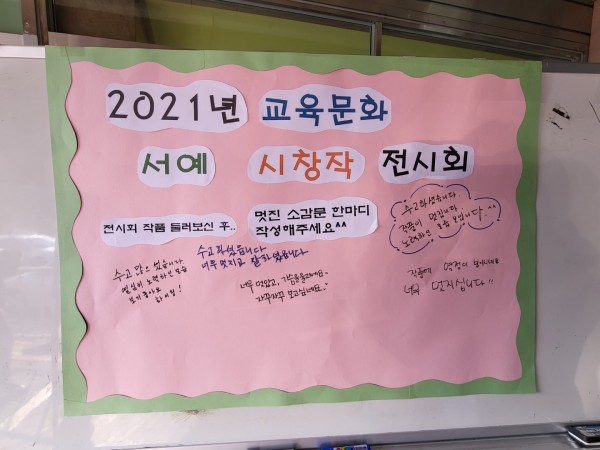 2021년 교육문화
서예 시창작 전시회
전시회 작품 둘러보신 후..
멋진 소감문 한마디
작성해주세요^^
수고하셨습니다
작품이 멋집니다
노력하신 보입니다.^^
수고 많으셨습니다
열심히 노력하신 모습
보기 좋아요
화이팅!
수고 하셨습니다
너무 멋지고 잘 하셨습니다
너무 멋있고,
자꾸자꾸 보고싶네요."
작품에 열정이
너무 멋지십니다!!